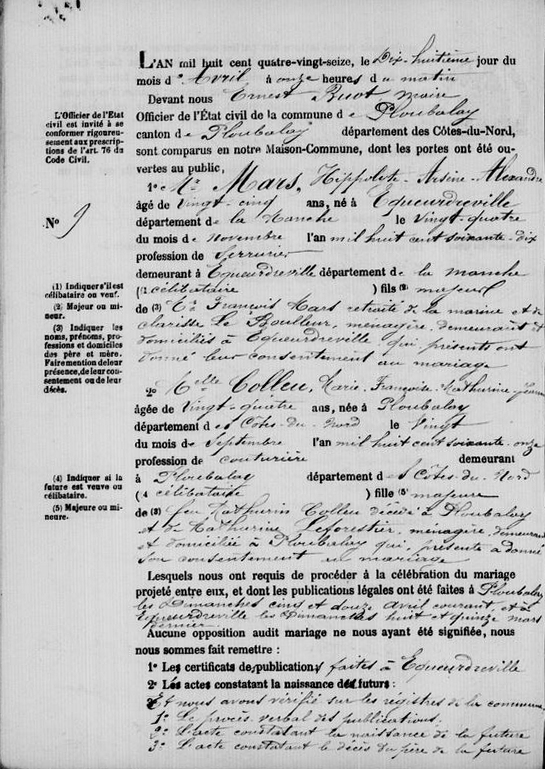 L'AN mil huit cent quatre-vingt-seize, le Dix-huitième jour du
mois d'Avril à onze heures du matin
Devant nous Ernest Buot maire
Officier de l'État civil de la commune de Ploubalay
canton de Ploubalay département des Côtes-du-Nord,
sont comparus en notre Maison-Commune, dont les portes ont été ou-
vertes au public,
1° Mr Mars, Hippolyte-Arsène-Alexandre
âgé de Vingt-cinq ans, né à Equeurdreville
département de la Manche le Vingt-quatre
du mois de Novembre l'an mil huit cent soixante-dix
profession de Serrurier
demeurant à Equeurdreville département de la manche
(1 célibataire ) fils (2) majeur
de (3) Mr François Mars retraité de la marine et de
clarisse Le Boulleur, ménagère, demeurant et
domiciliés à Equeurdreville qui, présents ont
donné leur consentement au mariage
2° Melle Colleu, Marie-Françoise-Mathurine-Jeanne
âgée de Vingt-quatre ans, née à Ploubalay
département des Côtes-du-Nord le Vingt
du mois de Septembre l'an mil huit cent soixante-onze
profession de couturière demeurant
à Ploubalay département des Côtes-du-Nord
(4 célibataire ) fille (5) majeure
de (3) feu Mathurin Colleu décédé à Ploubalay
et de Mathurine Leforestier, ménagère, demeurant
et domiciliée à Ploubalay qui, présente a donné
son consentement au mariage
Lesquels nous ont requis de procéder à la célébration du mariage
projeté entre eux, et dont les publications légales ont été faites à Ploubalay
les Dimanches cinq et douze avril courant, et à
Equeurdreville les Dimanches huit et quinze mars
dernier
Aucune opposition audit mariage ne nous ayant été signifiée, nous
nous sommes fait remettre :
1° Les certificats de publications faites à Equeurdreville
2° Les actes constatant la naissance des futurs :
Et nous avons vérifié sur les régistres de la commune
1° Le procès verbal des publications.
2° L'acte constatant la naissance de la future
3° L'acte constatant le décès du père de la future
L'Officier de l'État
civil est invité à se
conformer rigoureu-
sement aux prescrip-
tions de l'art. 76 du
Code Civil.
N° 9
(1) Indiquer s'il est
célibataire ou veuf.
(2) Majeur ou mi-
neur.
(3) Indiquer les
noms, prénoms, pro-
fessions et domiciles
des père et mère.
Faire mention de leur
présence, de leur con-
sentement ou de leur
décès.
(4) Indiquer si la
future est veuve ou
célibataire.
(5) Majeure ou mi-
neure.